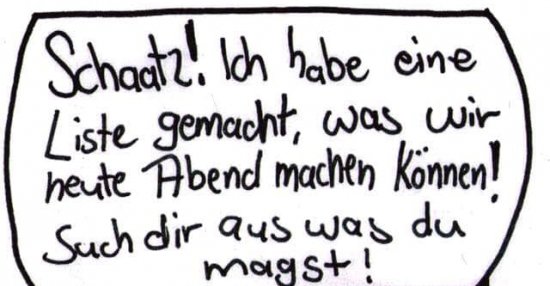 Schaatz! Ich habe eine
Liste gemacht, was wir
heute Abend machen können!
Such dir aus was du
magst!